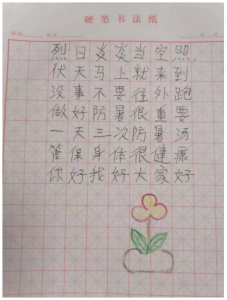 硬笔书法纸
烈日炎炎当空照
伏天马上就来到
没事不要往外跑
做好防暑很重要
一天三次防暑汤
管保身体很健康
你好我好大家好